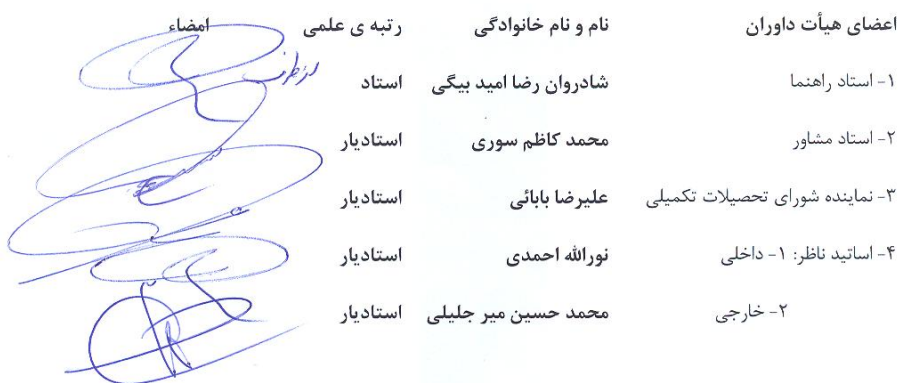 اعضای هیأت داوران نام و نام خانوادگی رتبه ی علمی امضاء
از طرف
۱- استاد راهنما شادروان رضا امید بیگی استاد
۲- استاد مشاور محمد کاظم سوری استادیار
۳- نماینده شورای تحصیلات تکمیلی علیرضا بابائی استادیار
۴- اساتید ناظر: ۱- داخلی نورالله احمدی استادیار
۲- خارجی محمد حسین میر جلیلی استادیار